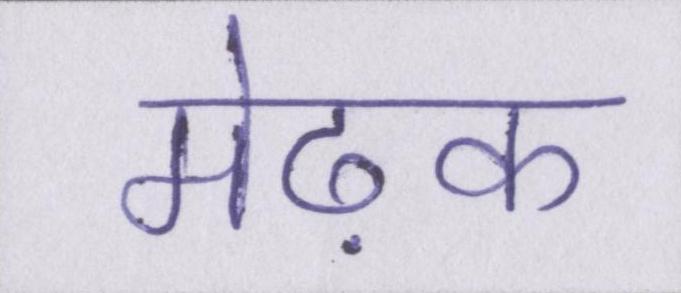 मेढ़क